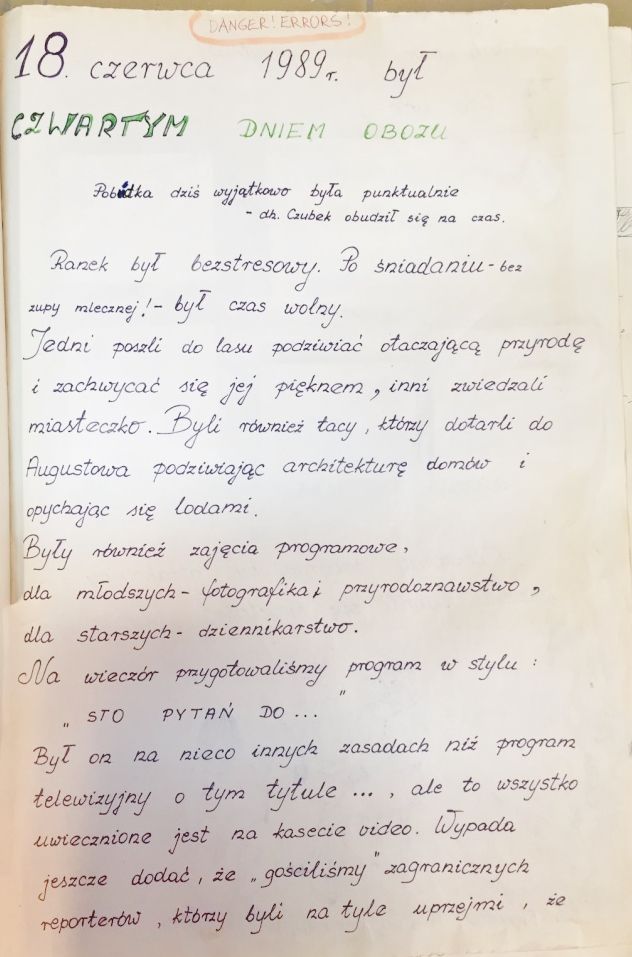 DANGER! ERRORS!
18. czerwca 1989r. był
CZWARTYM DNIEM OBOZU
Pobudka dziś wyjątkowo była punktualnie
- dh. Czubek obudził się na czas.
Ranek był bezstresowy. Po śniadaniu - bez
zupy mlecznej! - był czas wolny.
Jedni poszli do lasu podziwiać otaczającą przyrodę
i zachwycać się jej pięknem, inni zwiedzali
miasteczko. Byli również tacy, którzy dotarli do
Augustowa podziwiając architekturę domów i
opychając się lodami.
Były również zajęcia programowe,
dla młodszych - fotografika i przyrodoznawstwo,
dla starszych - dziennikarstwo.
Na wieczór przygotowaliśmy program w stylu:
„STO PYTAŃ DO..."
Był on na nieco innych zasadach niż program
telewizyjny o tym tytule ..., ale to wszystko
uwiecznione jest na kasecie video. Wypada
jeszcze dodać, że „gościliśmy" zagranicznych
reporterów, którzy byli na tyle uprzejmi, że